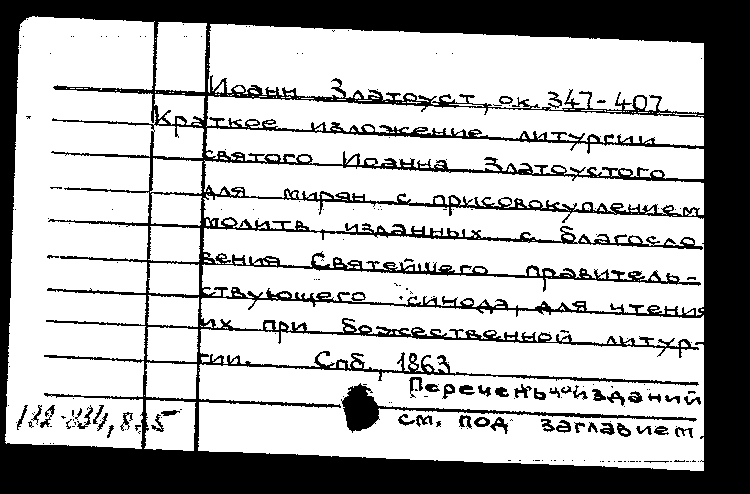 Иоанн Златоуст, ок. 347-407
Краткое изложение литургии
святого Иоанна Златоустого
для мирян, с присовокуплением
молитв, изданных с благосло
вения Святейшего правитель-
ствующего синода, для чтения
их при божественной литур-
гии. Спб., 1863
Перечень изданий
см. под заглавием.
132-834,835